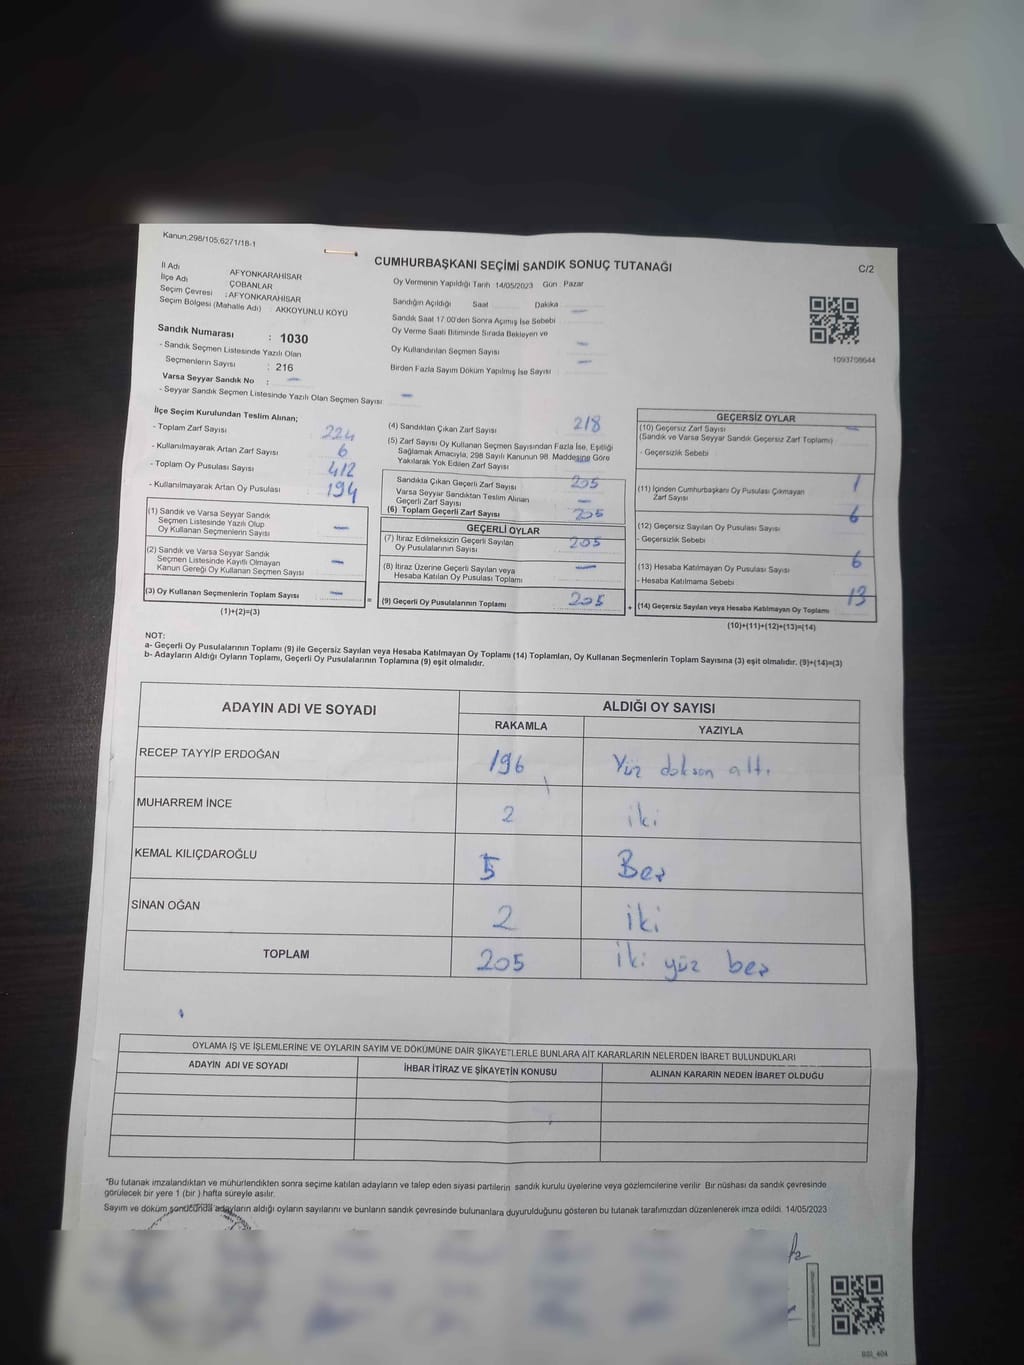 Kanun:298/105,6271/18-1
CUMHURBAŞKANI SEÇİMİ SANDIK SONUÇ TUTANAĞI
C/2
İl Adı AFYONKARAHİSAR
İlçe Adı ÇOBANLAR
Seçim Çevresi : AFYONKARAHİSAR
Seçim Bölgesi (Mahalle Adı) : AKKOYUNLU KÖYÜ
Sandık Numarası : 1030
- Sandık Seçmen Listesinde Yazılı Olan
Seçmenlerin Sayısı : 216
Varsa Seyyar Sandık No : —
- Seyyar Sandık Seçmen Listesinde Yazılı Olan Seçmen Sayısı —
Oy Vermenin Yapıldığı Tarih :14/05/2023 Gün : Pazar
Sandığın Açıldığı Saat Dakika —
Sandık Saat 17:00'den Sonra Açımış İse Sebebi
Oy Verme Saati Bitiminde Sırada Bekleyen ve
Oy Kullandırılan Seçmen Sayısı —
Birden Fazla Sayım Döküm Yapılmış İse Sayısı —
1093708644
İlçe Seçim Kurulundan Teslim Alınan;
- Toplam Zarf Sayısı 224
- Kullanılmayarak Artan Zarf Sayısı 6
- Toplam Oy Pusulası Sayısı 412
- Kullanılmayarak Artan Oy Pusulası 194
(1) Sandık ve Varsa Seyyar Sandık
Seçmen Listesinde Yazılı Olup
Oy Kullanan Seçmenlerin Sayısı —
(2) Sandık ve Varsa Seyyar Sandık
Seçmen Listesinde Kayıtlı Olmayan
Kanun Gereği Oy Kullanan Seçmen Sayısı —
(3) Oy Kullanan Seçmenlerin Toplam Sayısı — =
(1)+(2)=(3)
(4) Sandıktan Çıkan Zarf Sayısı 218
(5) Zarf Sayısı Oy Kullanan Seçmen Sayısından Fazla İse, Eşitliği
Sağlamak Amacıyla, 298 Sayılı Kanunun 98. Maddesine Göre
Yakılarak Yok Edilen Zarf Sayısı —
Sandıkta Çıkan Geçerli Zarf Sayısı 205
Varsa Seyyar Sandıktan Teslim Alınan
Geçerli Zarf Sayısı —
(6) Toplam Geçerli Zarf Sayısı 205
GEÇERLİ OYLAR
(7) İtiraz Edilmeksizin Geçerli Sayılan
Oy Pusulalarının Sayısı 205
(8) İtiraz Üzerine Geçerli Sayılan veya
Hesaba Katılan Oy Pusulası Toplamı —
(9) Geçerli Oy Pusulalarının Toplamı 205 +
GEÇERSİZ OYLAR
(10) Geçersiz Zarf Sayısı —
(Sandık ve Varsa Seyyar Sandık Geçersiz Zarf Toplamı)
- Geçersizlik Sebebi
(11) İçinden Cumhurbaşkanı Oy Pusulası Çıkmayan 1
Zarf Sayısı
(12) Geçersiz Sayılan Oy Pusulası Sayısı 6
- Geçersizlik Sebebi
(13) Hesaba Katılmayan Oy Pusulası Sayısı 6
- Hesaba Katılmama Sebebi
(14) Geçersiz Sayılan veya Hesaba Katılmayan Oy Toplamı 13
(10)+(11)+(12)+(13)=(14)
NOT:
a- Geçerli Oy Pusulalarının Toplamı (9) ile Geçersiz Sayılan veya Hesaba Katılmayan Oy Toplamı (14) Toplamları, Oy Kullanan Seçmenlerin Toplam Sayısına (3) eşit olmalıdır. (9)+(14)=(3)
b- Adayların Aldığı Oyların Toplamı, Geçerli Oy Pusulalarının Toplamına (9) eşit olmalıdır.
ADAYIN ADI VE SOYADI ALDIĞI OY SAYISI
RAKAMLA YAZIYLA
RECEP TAYYİP ERDOĞAN 196 Yüz doksan altı
MUHARREM İNCE 2 iki
KEMAL KILIÇDAROĞLU 5 Beş
SİNAN OĞAN 2 iki
TOPLAM 205 iki yüz beş
OYLAMA İŞ VE İŞLEMLERİNE VE OYLARIN SAYIM VE DÖKÜMÜNE DAİR ŞİKAYETLERLE BUNLARA AİT KARARLARIN NELERDEN İBARET BULUNDUKLARI
ADAYIN ADI VE SOYADI İHBAR İTİRAZ VE ŞİKAYETİN KONUSU ALINAN KARARIN NEDEN İBARET OLDUĞU
*Bu tutanak imzalandıktan ve mühürlendikten sonra seçime katılan adayların ve talep eden siyasi partilerin sandık kurulu üyelerine veya gözlemcilerine verilir. Bir nüshası da sandık çevresinde
görülecek bir yere 1 (bir ) hafta süreyle asılır.
Sayım ve döküm sonucunda adayların aldığı oyların sayılarını ve bunların sandık çevresinde bulunanlara duyurulduğunu gösteren bu tutanak tarafımızdan düzenlenerek imza edildi. 14/05/2023